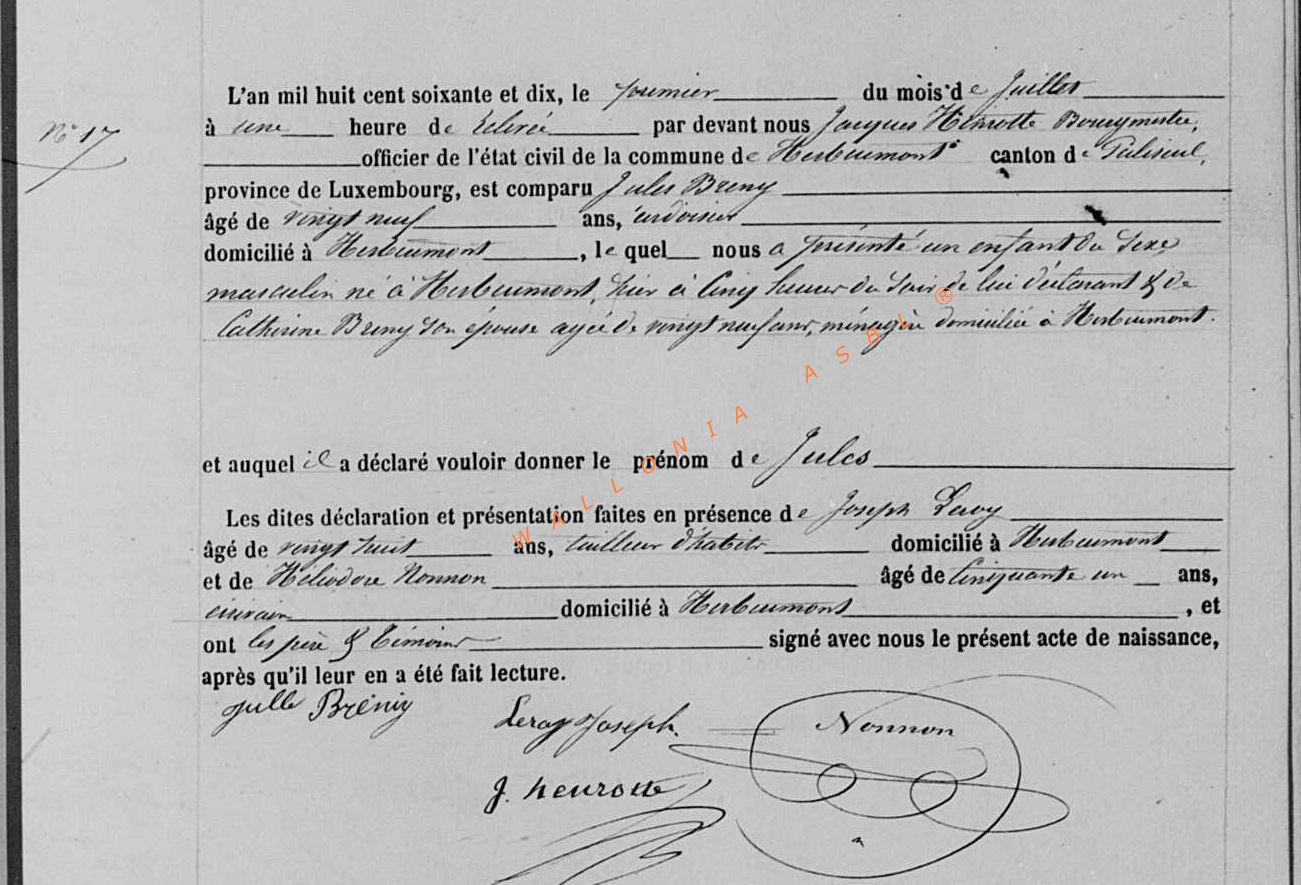 L'an mil huit cent soixante et dix, le premier du mois de Juillet
N° 17
à une heure de relevée par devant nous Jacques Henrotte Bourgmestre,
officier de l'état civil de la commune de Herbeumont canton de Paliseul,
province de Luxembourg, est comparu Jules Breny
âgé de vingt neuf ans, ardoisier
domicilié à Herbeumont, le quel nous a présenté un enfant du sexe
masculin né à Herbeumont, hier à cinq heures du soir de lui déclarant & de
Catherine Breny son épouse agée de vingt neuf ans, ménagère domiciliée à Herbeumont.
WALLONIA ASBL ®
et auquel il a déclaré vouloir donner le prénom de Jules
Les dites déclaration et présentation faites en présence de Joseph Leroy
âgé de vingt huit ans, tailleur d'habits domicilié à Herbeumont
et de Héliodore Nonnon âgé de Cinquante un ans,
écrivain domicilié à Herbeumont, et
ont les père & témoins signé avec nous le présent acte de naissance,
après qu'il leur en a été fait lecture.
Julle Brény Leroy Joseph. Nonnon
J. henrotte